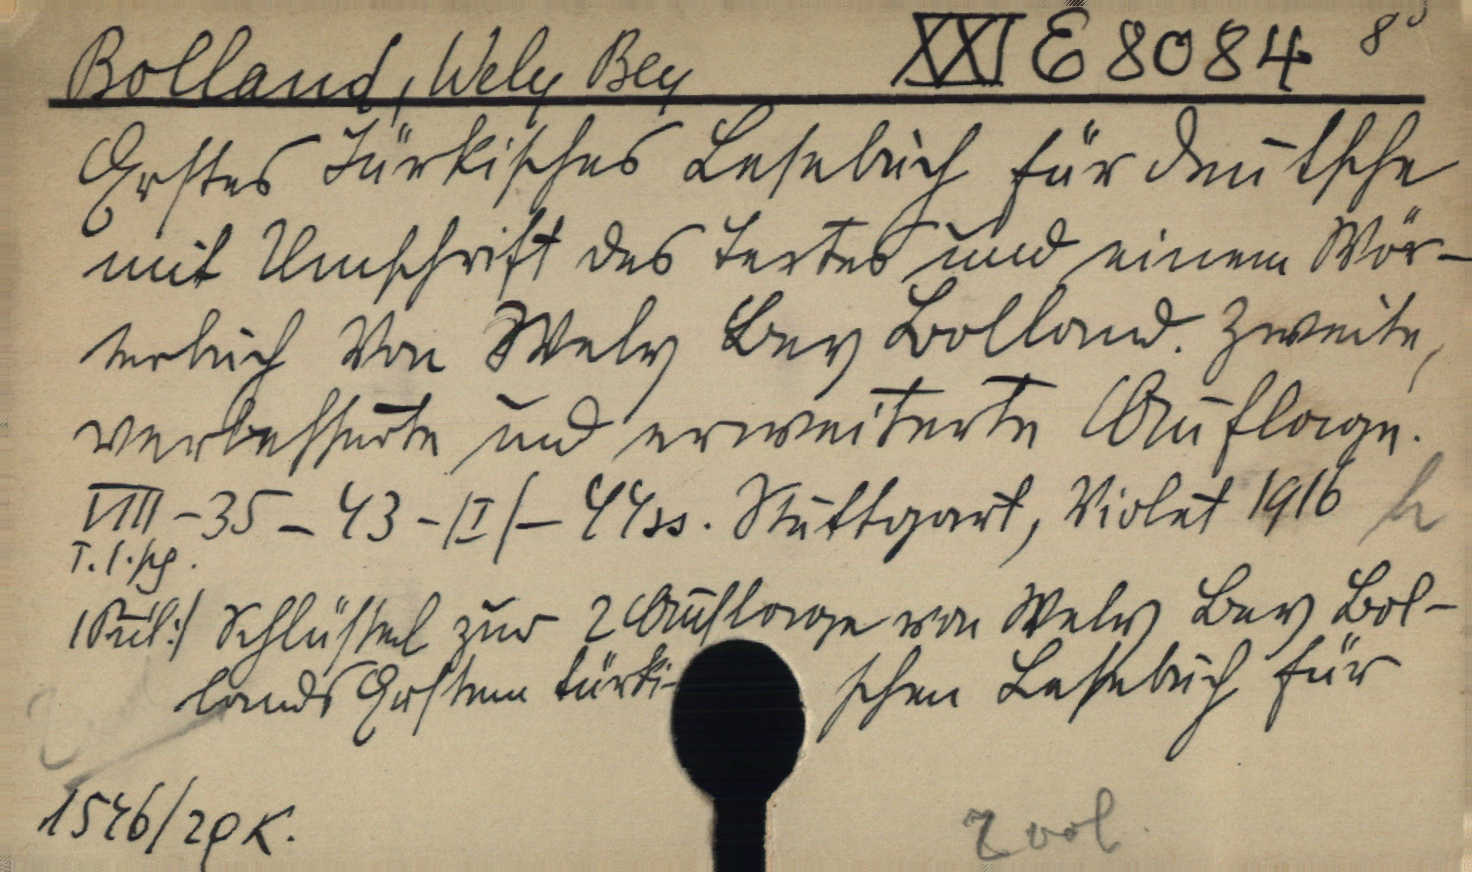 Bolland, Wely Bey XXI E 8084 8°
Erstes Türkisches Lesebuch für Deutsche
mit Umschrift des Textes und einem Wör-
terbuch von Wely Bey Bolland. Zweite,
verbesserte und erweiterte Auflage.
VIII - 35 - 43 - II / - 44 ss. Stuttgart, Violet 1916
T. l. sp.
Schlüssel zur 2 Auflage von Wely Bey Bol-
lands Erstem türki- schen Lesebuch für
1546/29 K.